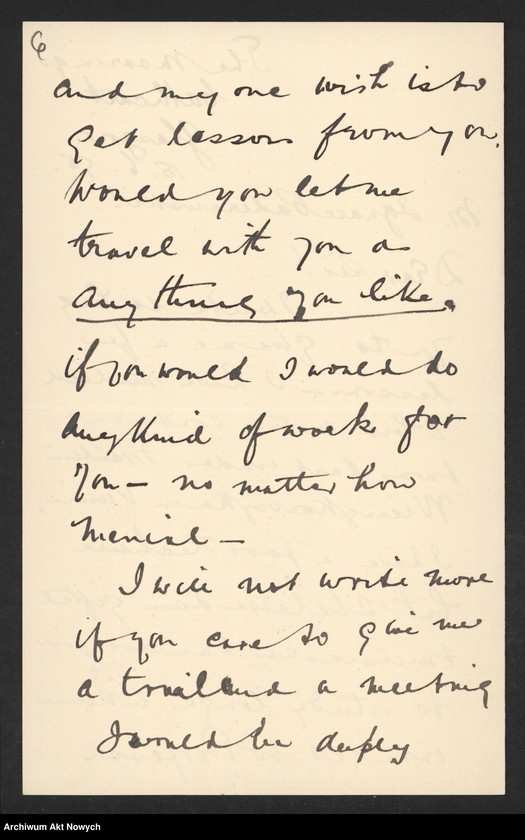 6
and my one wish is to
get lessons from you.
Would you let me
travel with you as
anything you like.
if you would I would do
any kind of work for
you — no matter how
menial —
I will not write more
if you care to give me
a trial and a meeting
I would be deeply
Archiwum Akt Nowych